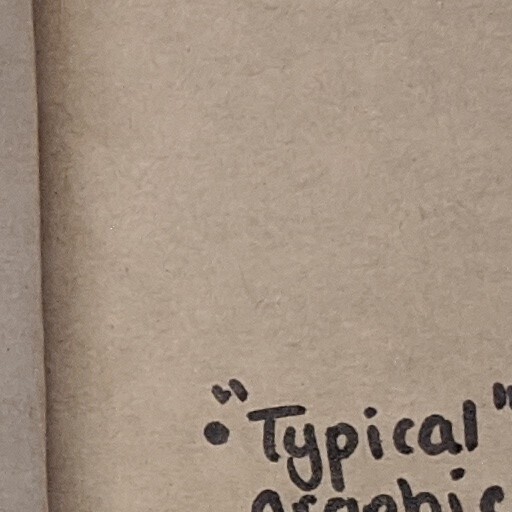 • "Typical"
graphic